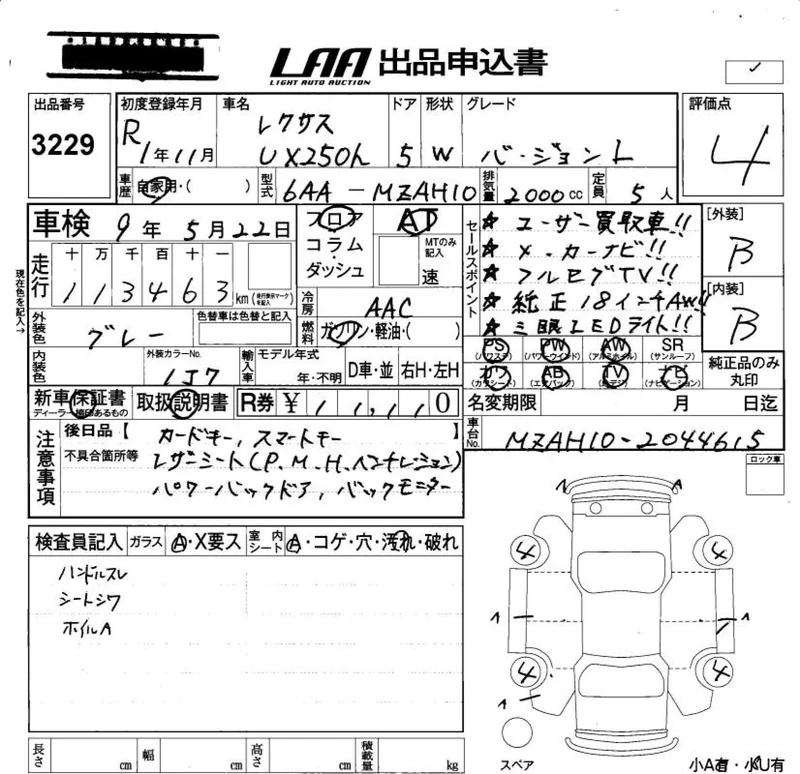 LAA 出品申込書
LIGHT AUTO AUCTION
✓
出品番号
3229
初度登録年月
R1年11月
車名
レクサス
UX250h
ドア
5
形状
W
グレード
バージョンL
評価点
4
車歴
自家用・( )
型式
6AA-MZAH10
排気量
2000cc
定員
5人
車検
9年5月22日
フロア
コラム・
ダッシュ
AT
MTのみ
記入
速
セールスポイント
★ユーザー買取車!!
★メーカーナビ!!
★フルセグTV!!
★純正18インチAW!!
★三眼LEDライト!!
[外装]
B
[内装]
B
現在色を記入→
走行
十 万 千 百 十 一
113463
km(走行表示マークを記入)
冷房
AAC
燃料
ガソリン・軽油・( )
外装色
グレー
色替車は色替と記入
内装色
外装カラーNo.
1J7
輸入車
モデル年式
年・不明
D車・並
右H・左H
PS
(パワステ)
PW
(パワーウインド)
AW
(アルミホイル)
SR
(サンルーフ)
カワ
(カワシート)
AB
(エアバック)
TV
(ナビ)
(ナビゲーション)
純正品のみ
丸印
新車保証書
ディーラー捺印あるもの
取扱説明書
R券
¥ 11,110
名変期限
月 日迄
車台No.
MZAH10-2044615
注意事項
後日品【 カードキー,スマートキー 】
不具合箇所等
レザーシート(P.M.H.ベンチレーション)
パワーバックドア,バックモニター
ロック車
検査員記入
ガラス
A・X要ス
室内
シート
A・コゲ・穴・汚れ・破れ
ハンドルスレ
シートシワ
ホイルA
1
A
4
4
1
1
4
4
1
スペア
小A有・小U有
長さ
cm
幅
cm
高さ
cm
積載量
kg